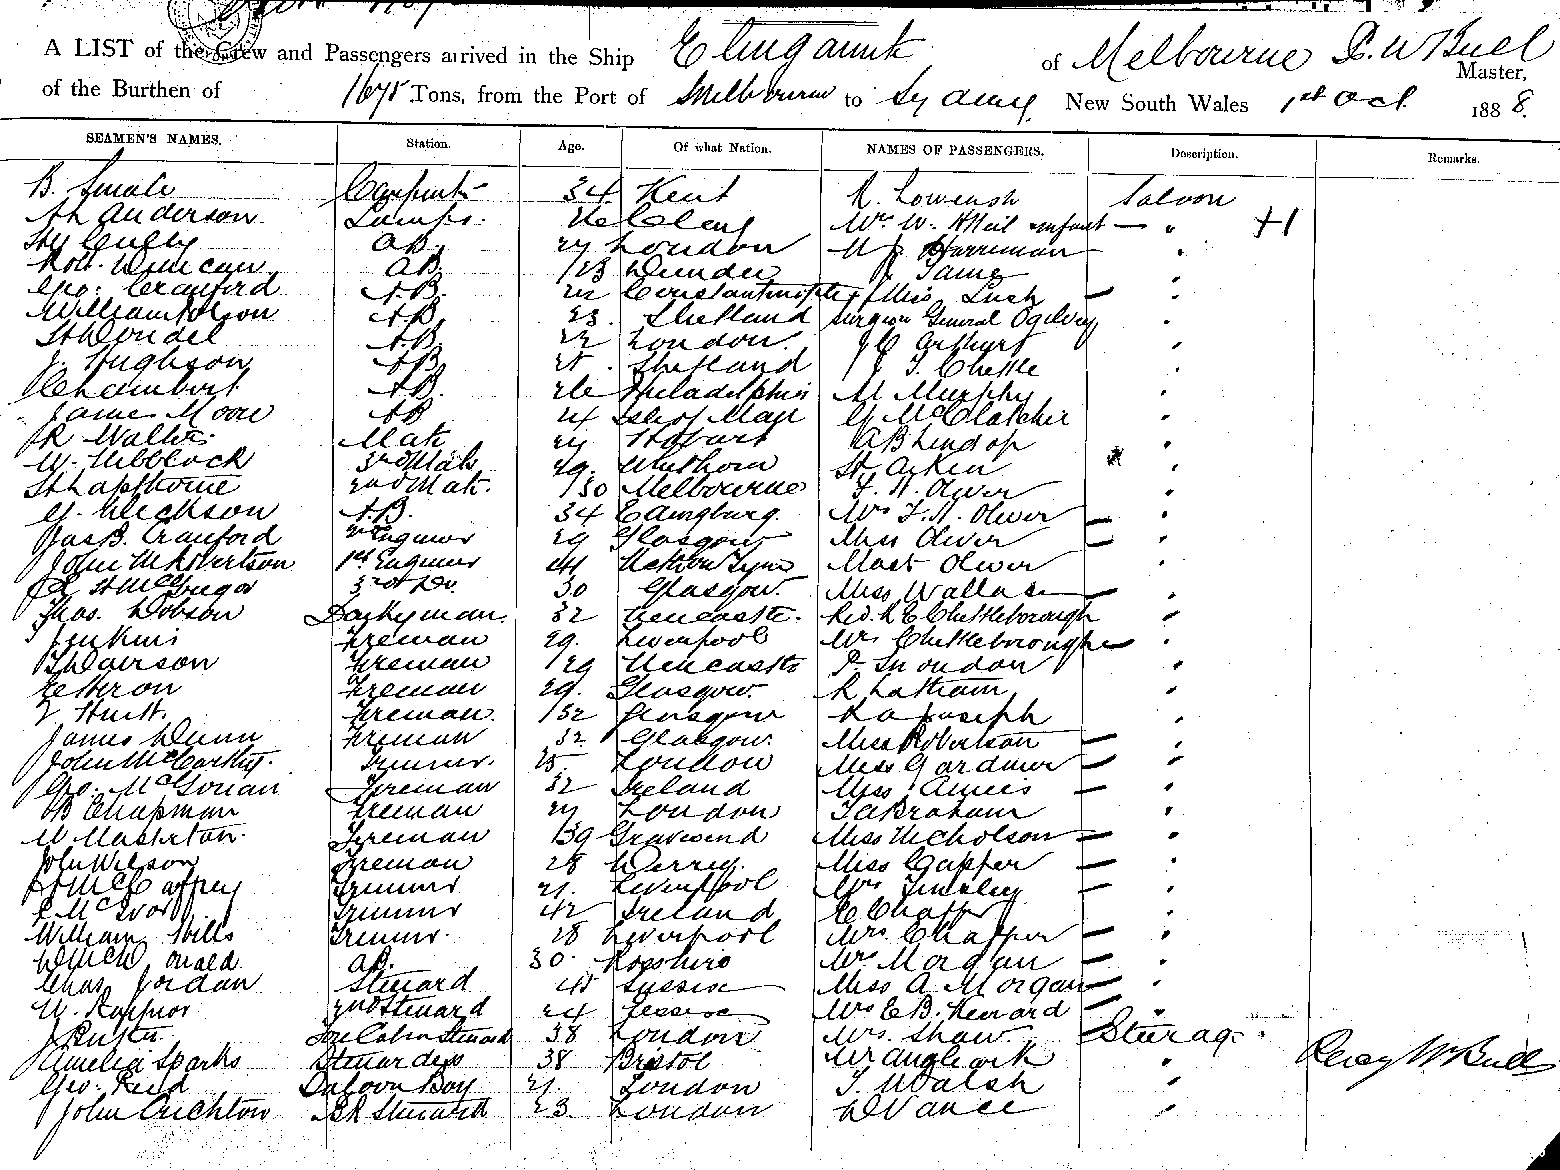 A LIST of the Crew and Passengers arrived in the Ship Elingamite of Melbourne P. W Bull Master,
of the Burthen of 1675 Tons, from the Port of Melbourne to Sydney, New South Wales 1st Oct 1888.
SEAMEN'S NAMES. Station. Age. Of what Nation. NAMES OF PASSENGERS. Description. Remarks.
B. Smale Carpentr 34 Kent R. Lowensh Saloon
Anderson Lamps. Mrs W. infant — " +1
AB. 27 London Harriman "
Robt. Duncan AB. 23 Dundee J. Taing "
Geo: Crawford A.B. 22 Constantinople Miss Lush — "
William A.B. 23. Shetland Surgeon General Ogilvey "
A.B. 22 London. J C Arthurs "
J. Hughson A.B. Shetland J T. Chettle "
Lambert A.B. 26 Philadelphia M Murphy "
James Moore AB 24 Isle of Man McClatchie "
R Walter Mate 29 Hobart A B Lindop "
W. 3rd Mate 29. Whithorn Aiken "
Lapthorne 2nd Mate. 30 Melbourne F. H. Oliver "
Dickson A.B. 34 Edingburg. Mrs F. H. Oliver — "
Jas B. Crauford 2nd Enginer 29 Glasgow Miss Oliver — "
John M Robertson 1st Enginer 44 Mast Oliver "
McGregor 3rd Do. 30 Glasgow. Miss Wallace — "
Thos. Dobson Donkyman. 32 Newcastle. Rev. R E Chettleborough "
Jenkins Fireman 29. Liverpool Mrs Chettleborough — "
Fireman 29 Newcastle Snowdon "
Heron Fireman 29. Glasgow. R Latham "
Hutt. Fireman. 32 Glasgow Joseph "
James Dunn Fireman 32. Glasgow. Miss Robertson — "
John McCarthy. Trimmr. 25. London Miss Gardiner — "
Geo. McGovan Fireman 32 Ireland Miss Amies — "
B Chapman Fireman 27 London T Abraham "
Masterton. Fireman 39 Gravesend Miss Nicholson — "
John Wilson Fireman 28 Derry. Miss Capper — "
McCaffrey Trimmr 21. Liverpool Mrs Tinsley — "
McIvor Trimmr 42 Ireland E Chaffer "
William Hills Trimmr. 28 Liverpool Mrs Chaffer — "
McDonald AB. 30. Rosshire Mrs Morgan — "
Chas Jordan Steward 45 Sussex Miss A Morgan — "
W. Raynor 2nd Steward 24 Essex Mrs E B. Kenard — "
J Rutter Fore Cabin Steward 38 London Mrs. Shaw. Steerage "
Amelia Sparks Stewardess 38 Bristol "
Geo. Reed Saloon Boy 21. London T Walsh "
John Crichton BR Steward 23. London D Vance "
Percy W Bull